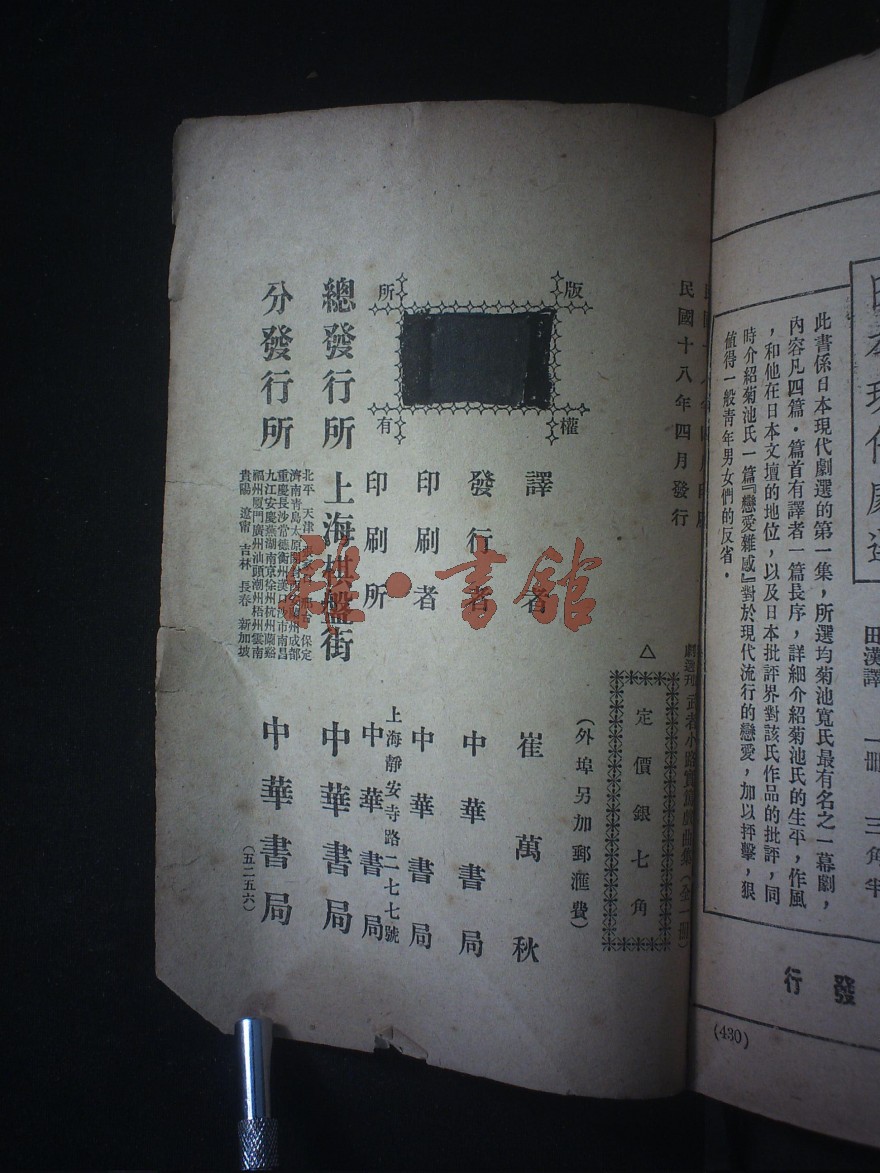 田漢譯 一册 三角半
此書係日本現代劇選的第一集，所選均菊池寬氏最有名之一幕劇，
內容凡四篇．篇首有譯者一篇長序，詳細介紹菊池氏的生平，作風
，和他在日本文壇的地位，以及日本批評界對該氏作品的批評，同
時介紹菊池氏一篇『戀愛雜感』對於現代流行的戀愛，加以抨擊，狠
值得一般靑年男女們的反省．
發
行
(430)
民國十八年四月發行
武者小路實篤戲曲集（全一册）
△
定價銀七角
（外埠另加郵滙費）
版權
所有
譯者 崔萬秋
發行者 中華書局
印刷者 中華書局
上海靜安寺路二七七號
印刷所 中華書局
總發行所 上海棋盤街 中華書局
分發行所 中華書局
北平 天津 保定
濟南靑島太原開封西安蘭州成都
重慶長沙常德衡州漢口沙市南昌
九江安慶蕪湖南京徐州杭州蘭谿
福州廈門廣州汕頭潮州梧州雲南
貴陽 遼甯 吉林 長春 新加坡
（五二五六）
書館